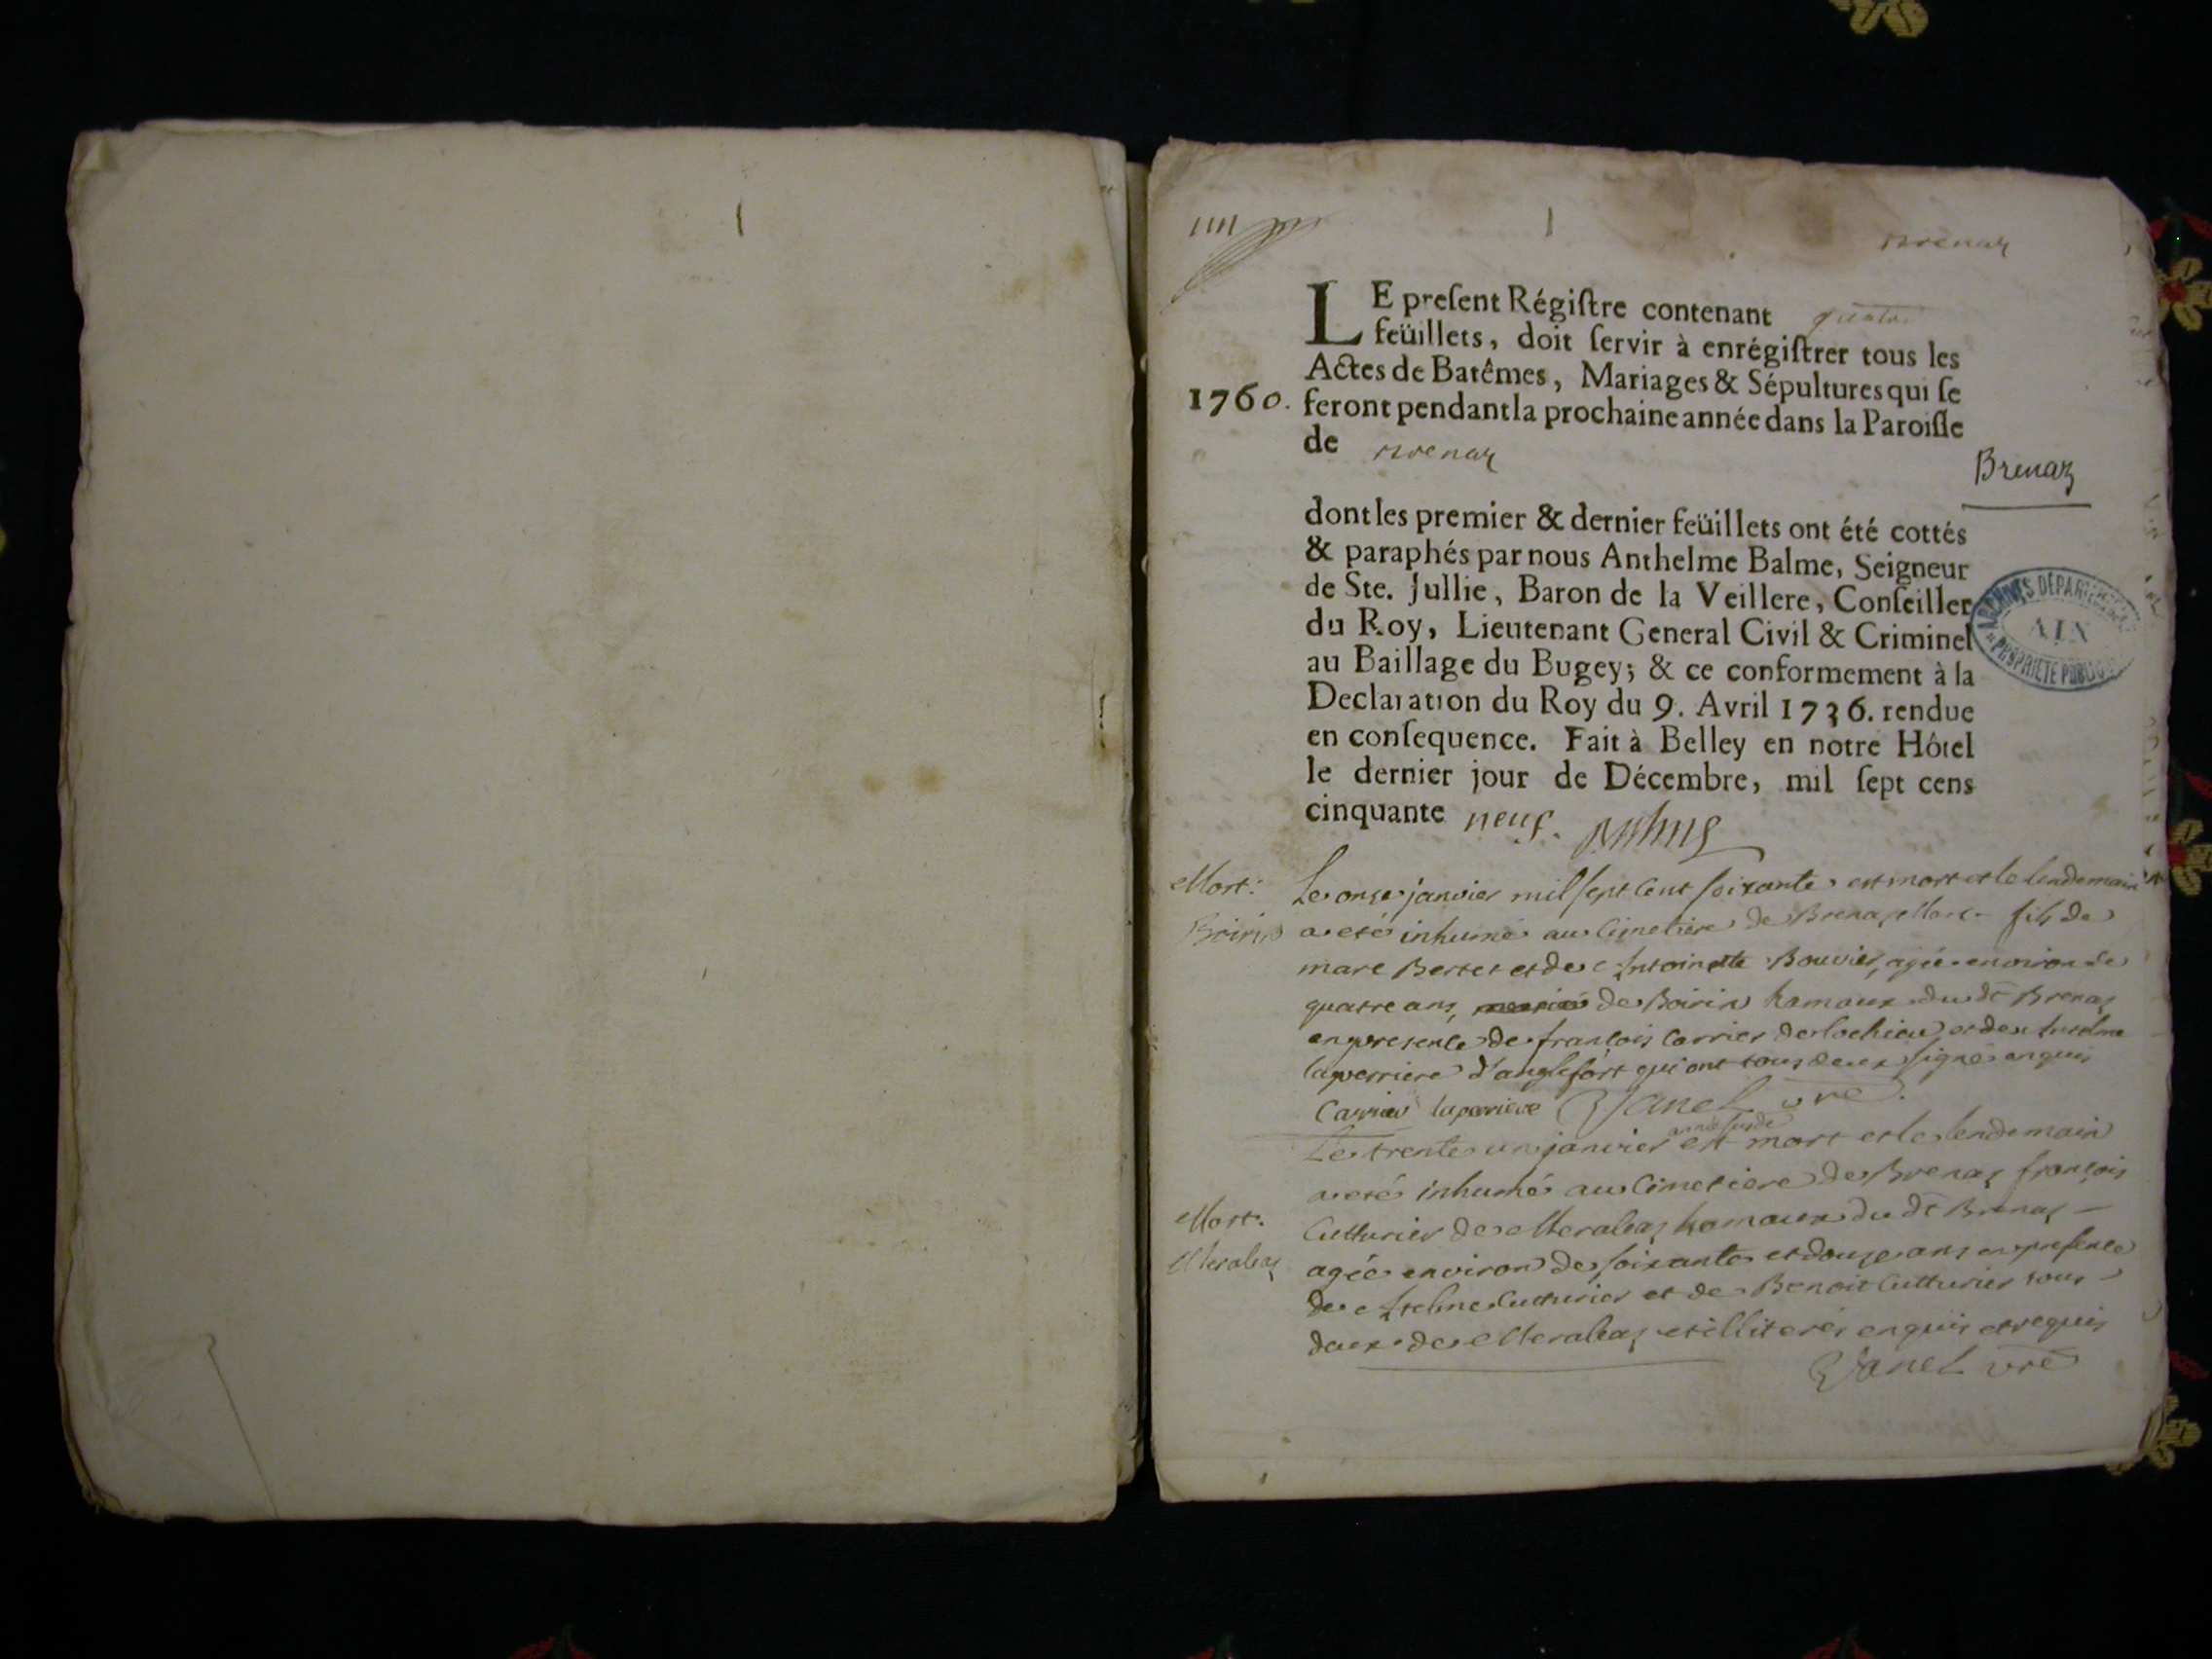 Brenaz
LE preſent Régiſtre contenant quatre
feüillets, doit ſervir à enrégiſtrer tous les
Actes de Batêmes, Mariages & Sépultures qui ſe
1760. feront pendant la prochaine année dans la Paroiſſe
de Brenaz
Brenaz
dont les premier & dernier feüillets ont été cottés
& paraphés par nous Anthelme Balme, Seigneur
de Ste. Jullie, Baron de la Veillere, Conſeiller
du Roy, Lieutenant General Civil & Criminel
au Baillage du Bugey; & ce conformement à la
Declaration du Roy du 9. Avril 1736. rendue
en conſequence. Fait à Belley en notre Hôtel
le dernier jour de Décembre, mil ſept cens
cinquante neuf.
ARCHIVES DÉPARTEMENTALES
AIN
PROPRIETE PUBLIQUE
Mort:
Boirin
Le onze janvier mil sept cent soixante est mort et le lendemain
a eté inhumé au Cimetiere de Brenaz Marc fils de
marc Bertet et de Antoinette Bouvier, agé environ de
quatre ans, de Boirin hamaux du dt Brenaz
en presence de françois Carrier de lochieu et de Antelme
laperriere d'anglefort qui ont tous deux signé enquis
Carrier laperriere Janel vre.
Le trente un janvier est mort et le lendemain
a eté inhumé au Cimetiere de Brenaz françois
Mort.
Meraleaz
Cutturier de Meraleaz hamaux du dt Brenaz
agée environ de soixante et douze ans en presence
de Antelme Cutturier et de Benoit Cutturier tous
deux de Meraleaz et illiterés enquis et requis
Janel vre